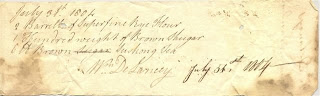 July 31st 1804
2 Barrells of Superfine Rye Flour
1 Hundred weight of Brown Shugar
6 lb Brown Sushong Tea
Wm DeLancey July 31st 1804